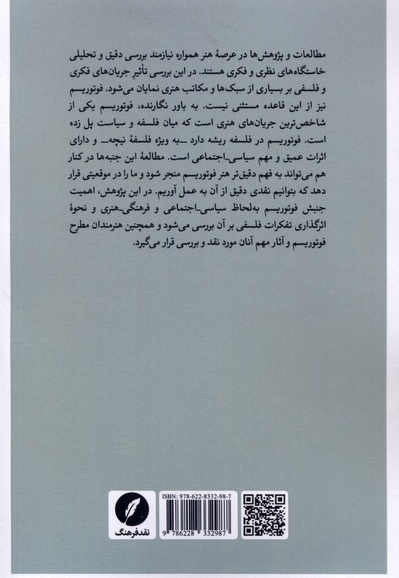 مطالعات و پژوهش‌ها در عرصهٔ هنر همواره نیازمند بررسی دقیق و تحلیلی
خاستگاه‌های نظری و فکری هستند. در این بررسی تأثیر جریان‌های فکری
و فلسفی بر بسیاری از سبک‌ها و مکاتب هنری نمایان می‌شود. فوتوریسم
نیز از این قاعده مستثنی نیست. به باور نگارنده، فوتوریسم یکی از
شاخص‌ترین جریان‌های هنری است که میان فلسفه و سیاست پل زده
است. فوتوریسم در فلسفه ریشه دارد –به ویژه فلسفهٔ نیچه– و دارای
اثرات عمیق و مهم سیاسی-اجتماعی است. مطالعهٔ این جنبه‌ها در کنار
هم می‌تواند به فهم دقیق‌تر هنر فوتوریسم منجر شود و ما را در موقعیتی قرار
دهد که بتوانیم نقدی دقیق از آن به عمل آوریم. در این پژوهش، اهمیت
جنبش فوتوریسم به‌لحاظ سیاسی-اجتماعی و فرهنگی-هنری و نحوهٔ
اثرگذاری تفکرات فلسفی بر آن بررسی می‌شود و همچنین هنرمندان مطرح
فوتوریسم و آثار مهم آنان مورد نقد و بررسی قرار می‌گیرد.
ISBN: 978-622-8332-98-7
9 786228 332987
نقدفرهنگ